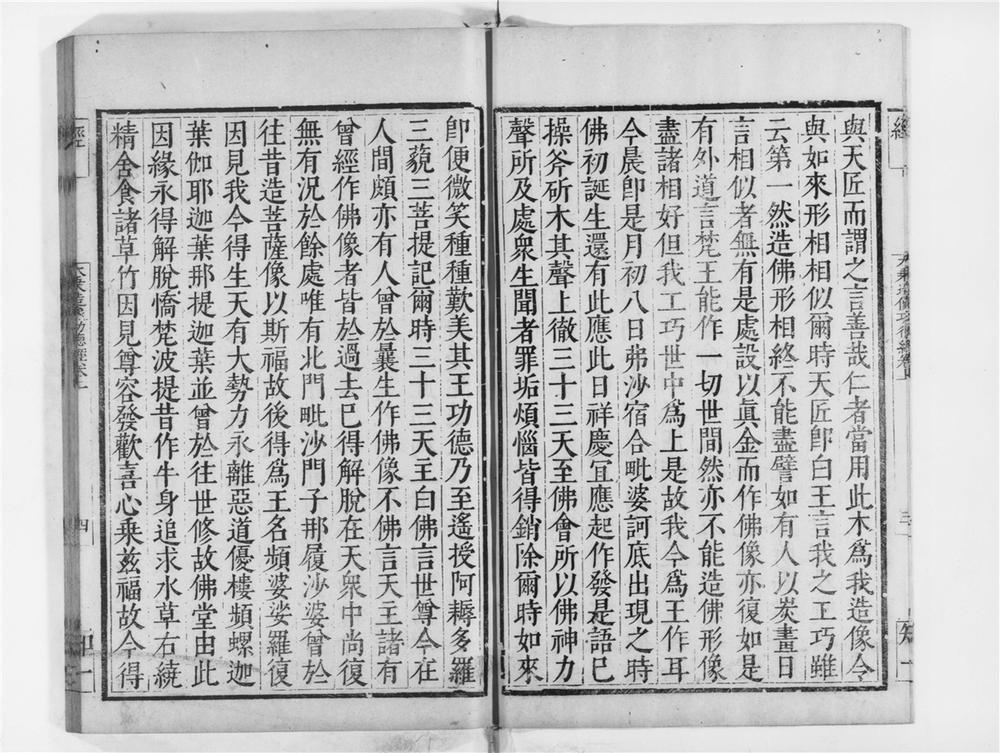 經
大乘造像功德經卷上
三
知一
與天匠而謂之言善哉仁者當用此木爲我造像令
與如來形相相似爾時天匠卽白王言我之工巧雖
云第一然造佛形相終不能盡譬如有人以炭畫日
言相似者無有是處設以眞金而作佛像亦復如是
有外道言梵王能作一切世間然亦不能造佛形像
盡諸相好但我工巧世中爲上是故我今爲王作耳
今晨卽是月初八日弗沙宿合毗婆訶底出現之時
佛初誕生還有此應此日祥慶宜應起作發是語已
操斧斫木其聲上徹三十三天至佛會所以佛神力
聲所及處衆生聞者罪垢煩惱皆得銷除爾時如來
卽便微笑種種歎美其王功德乃至遙授阿耨多羅
三藐三菩提記爾時三十三天王白佛言世尊今在
人間頗亦有人曾於曩生作佛像不佛言天王諸有
曾經作佛像者皆於過去已得解脫在天衆中尚復
無有況於餘處唯有北門毗沙門子那履沙婆曾於
往昔造菩薩像以斯福故後得爲王名頻婆娑羅復
因見我今得生天有大勢力永離惡道優樓頻螺迦
葉伽耶迦葉那提迦葉並曾於往世修故佛堂由此
因緣永得解脫憍梵波提昔作牛身追求水草右繞
精舍食諸草竹因見尊容發歡喜心乘茲福故今得
經
大乘造像功德經卷上
四